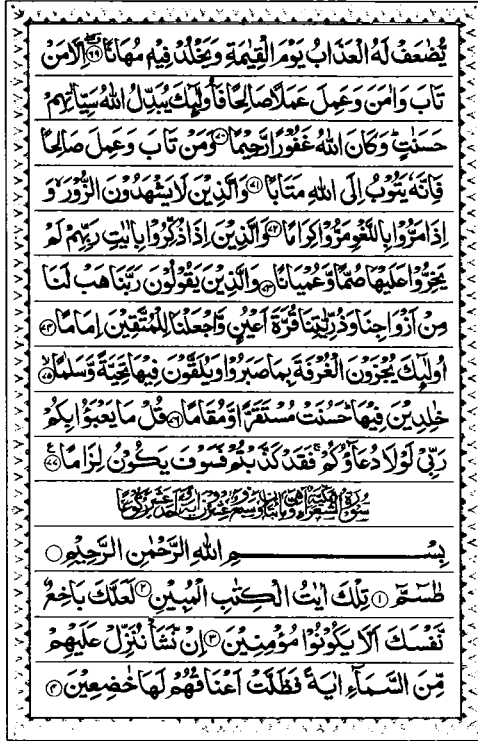 يُّضٰعَفْ لَهُ الْعَذَابُ يَوْمَ الْقِيٰمَةِ وَيَخْلُدْ فِيْهٖ مُهَانًا ﴿٦٩﴾ اِلَّا مَنْ
تَابَ وَاٰمَنَ وَعَمِلَ عَمَلًا صَالِحًا فَاُولٰٓئِكَ يُبَدِّلُ اللّٰهُ سَيِّاٰتِهِمْ
حَسَنٰتٍ ؕ وَكَانَ اللّٰهُ غَفُوْرًا رَّحِيْمًا ﴿٧٠﴾ وَمَنْ تَابَ وَعَمِلَ صَالِحًا
فَاِنَّهٗ يَتُوْبُ اِلَى اللّٰهِ مَتَابًا ﴿٧١﴾ وَالَّذِيْنَ لَا يَشْهَدُوْنَ الزُّوْرَ ۙ وَ
اِذَا مَرُّوْا بِاللَّغْوِ مَرُّوْا كِرَامًا ﴿٧٢﴾ وَالَّذِيْنَ اِذَا ذُكِّرُوْا بِاٰيٰتِ رَبِّهِمْ لَمْ
يَخِرُّوْا عَلَيْهَا صُمًّا وَّعُمْيَانًا ﴿٧٣﴾ وَالَّذِيْنَ يَقُوْلُوْنَ رَبَّنَا هَبْ لَنَا
مِنْ اَزْوَاجِنَا وَذُرِّيّٰتِنَا قُرَّةَ اَعْيُنٍ وَّاجْعَلْنَا لِلْمُتَّقِيْنَ اِمَامًا ﴿٧٤﴾
اُولٰٓئِكَ يُجْزَوْنَ الْغُرْفَةَ بِمَا صَبَرُوْا وَيُلَقَّوْنَ فِيْهَا تَحِيَّةً وَّسَلٰمًا ﴿٧٥﴾
خٰلِدِيْنَ فِيْهَا ؕ حَسُنَتْ مُسْتَقَرًّا وَّمُقَامًا ﴿٧٦﴾ قُلْ مَا يَعْبَؤُا بِكُمْ
رَبِّيْ لَوْلَا دُعَآؤُكُمْ ۚ فَقَدْ كَذَّبْتُمْ فَسَوْفَ يَكُوْنُ لِزَامًا ﴿٧٧﴾ ع
سُوْرَةُ الشُّعَرَآءِ
بِسْمِ اللّٰهِ الرَّحْمٰنِ الرَّحِيْمِ
طٰسٓمّٓ ﴿١﴾ تِلْكَ اٰيٰتُ الْكِتٰبِ الْمُبِيْنِ ﴿٢﴾ لَعَلَّكَ بَاخِعٌ
نَّفْسَكَ اَلَّا يَكُوْنُوْا مُؤْمِنِيْنَ ﴿٣﴾ اِنْ نَّشَاْ نُنَزِّلْ عَلَيْهِمْ
مِّنَ السَّمَآءِ اٰيَةً فَظَلَّتْ اَعْنَاقُهُمْ لَهَا خٰضِعِيْنَ ﴿٤﴾